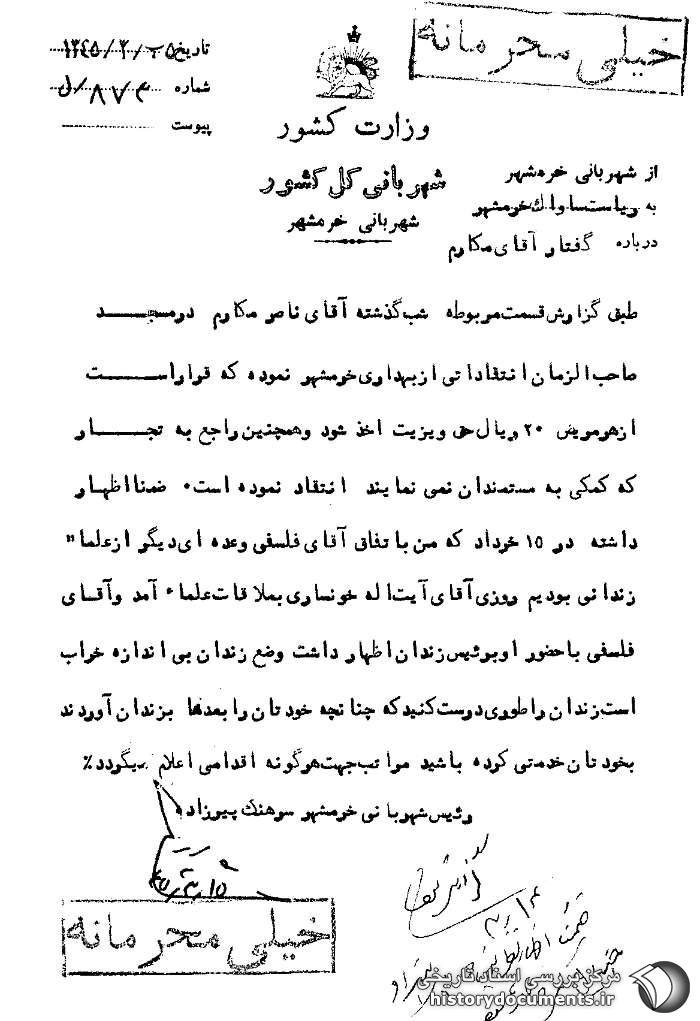 خیلی محرمانه
تاریخ ۱۳٤٥/۳/
شماره ۸۷۳/ل
پیوست
وزارت کشور
شهربانی کل کشور
شهربانی خرمشهر
از شهربانی خرمشهر
به ریاست ساواک خرمشهر
درباره گفتار آقای مکارم
طبق گزارش قسمت مربوطه شب گذشته آقای ناصر مکارم در مسجد
صاحب الزمان انتقاداتی از بهداری خرمشهر نموده که قرار است
از هر مریض ۲۰ ریال حق ویزیت اخذ شود و همچنین راجع به تجار
که کمکی به مستمندان نمی نمایند انتقاد نموده است۰ ضمنا اظهار
داشته در ۱٥ خرداد که من با تفاق آقای فلسفی و عده ای دیگر از علما"
زندانی بودیم روزی آقای آیت اله خونساری بملاقات علماء آمد و آقای
فلسفی با حضور او برئیس زندان اظهار داشت وضع زندان بی اندازه خراب
است زندان را طوری درست کنید که چنانچه خودتان را بعدها بزندان آوردند
بخودتان خدمتی کرده باشید مراتب جهت هرگونه اقدامی اعلام میگردد٪
رئیس شهربانی خرمشهر سرهنگ پیرزاده
خیلی محرمانه
مرکز بررسی اسناد تاریخی
historydocuments.ir